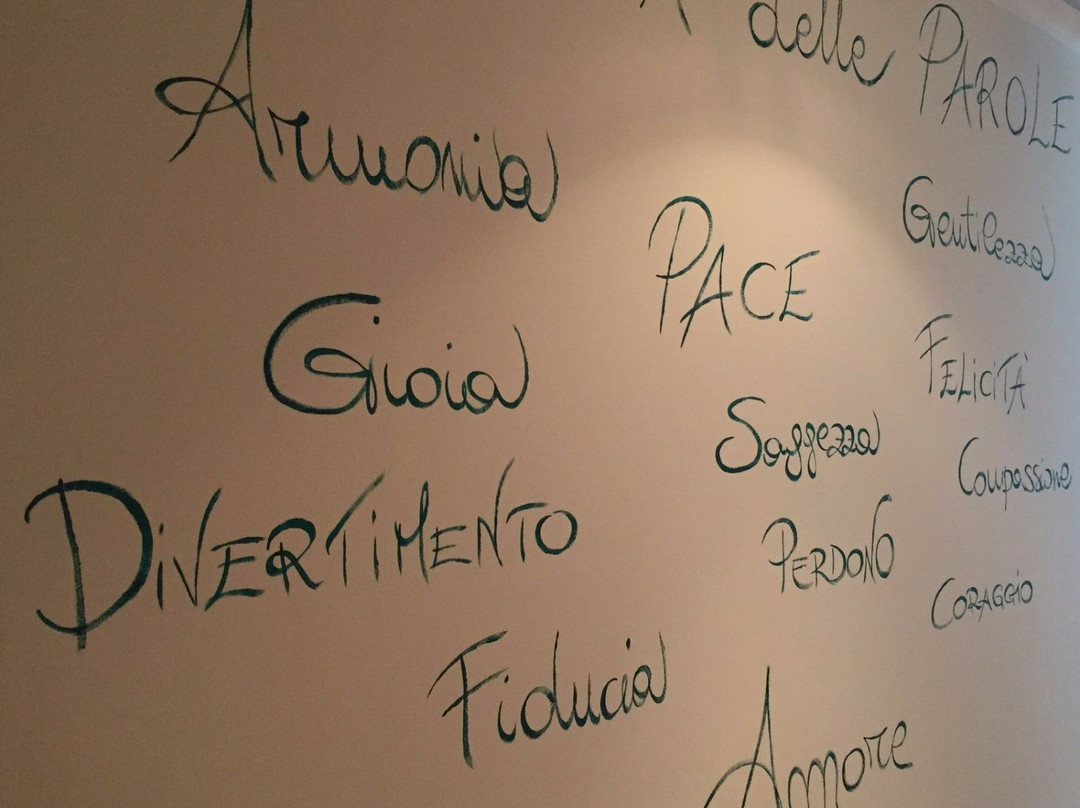 delle PAROLE
Armonia
Gentilezza
PACE
Gioia
FELiCiTÀ
Saggezza
Compassione
DiVERTiMENTO
PERDONO
CORAGGiO
Fiducia
Amore